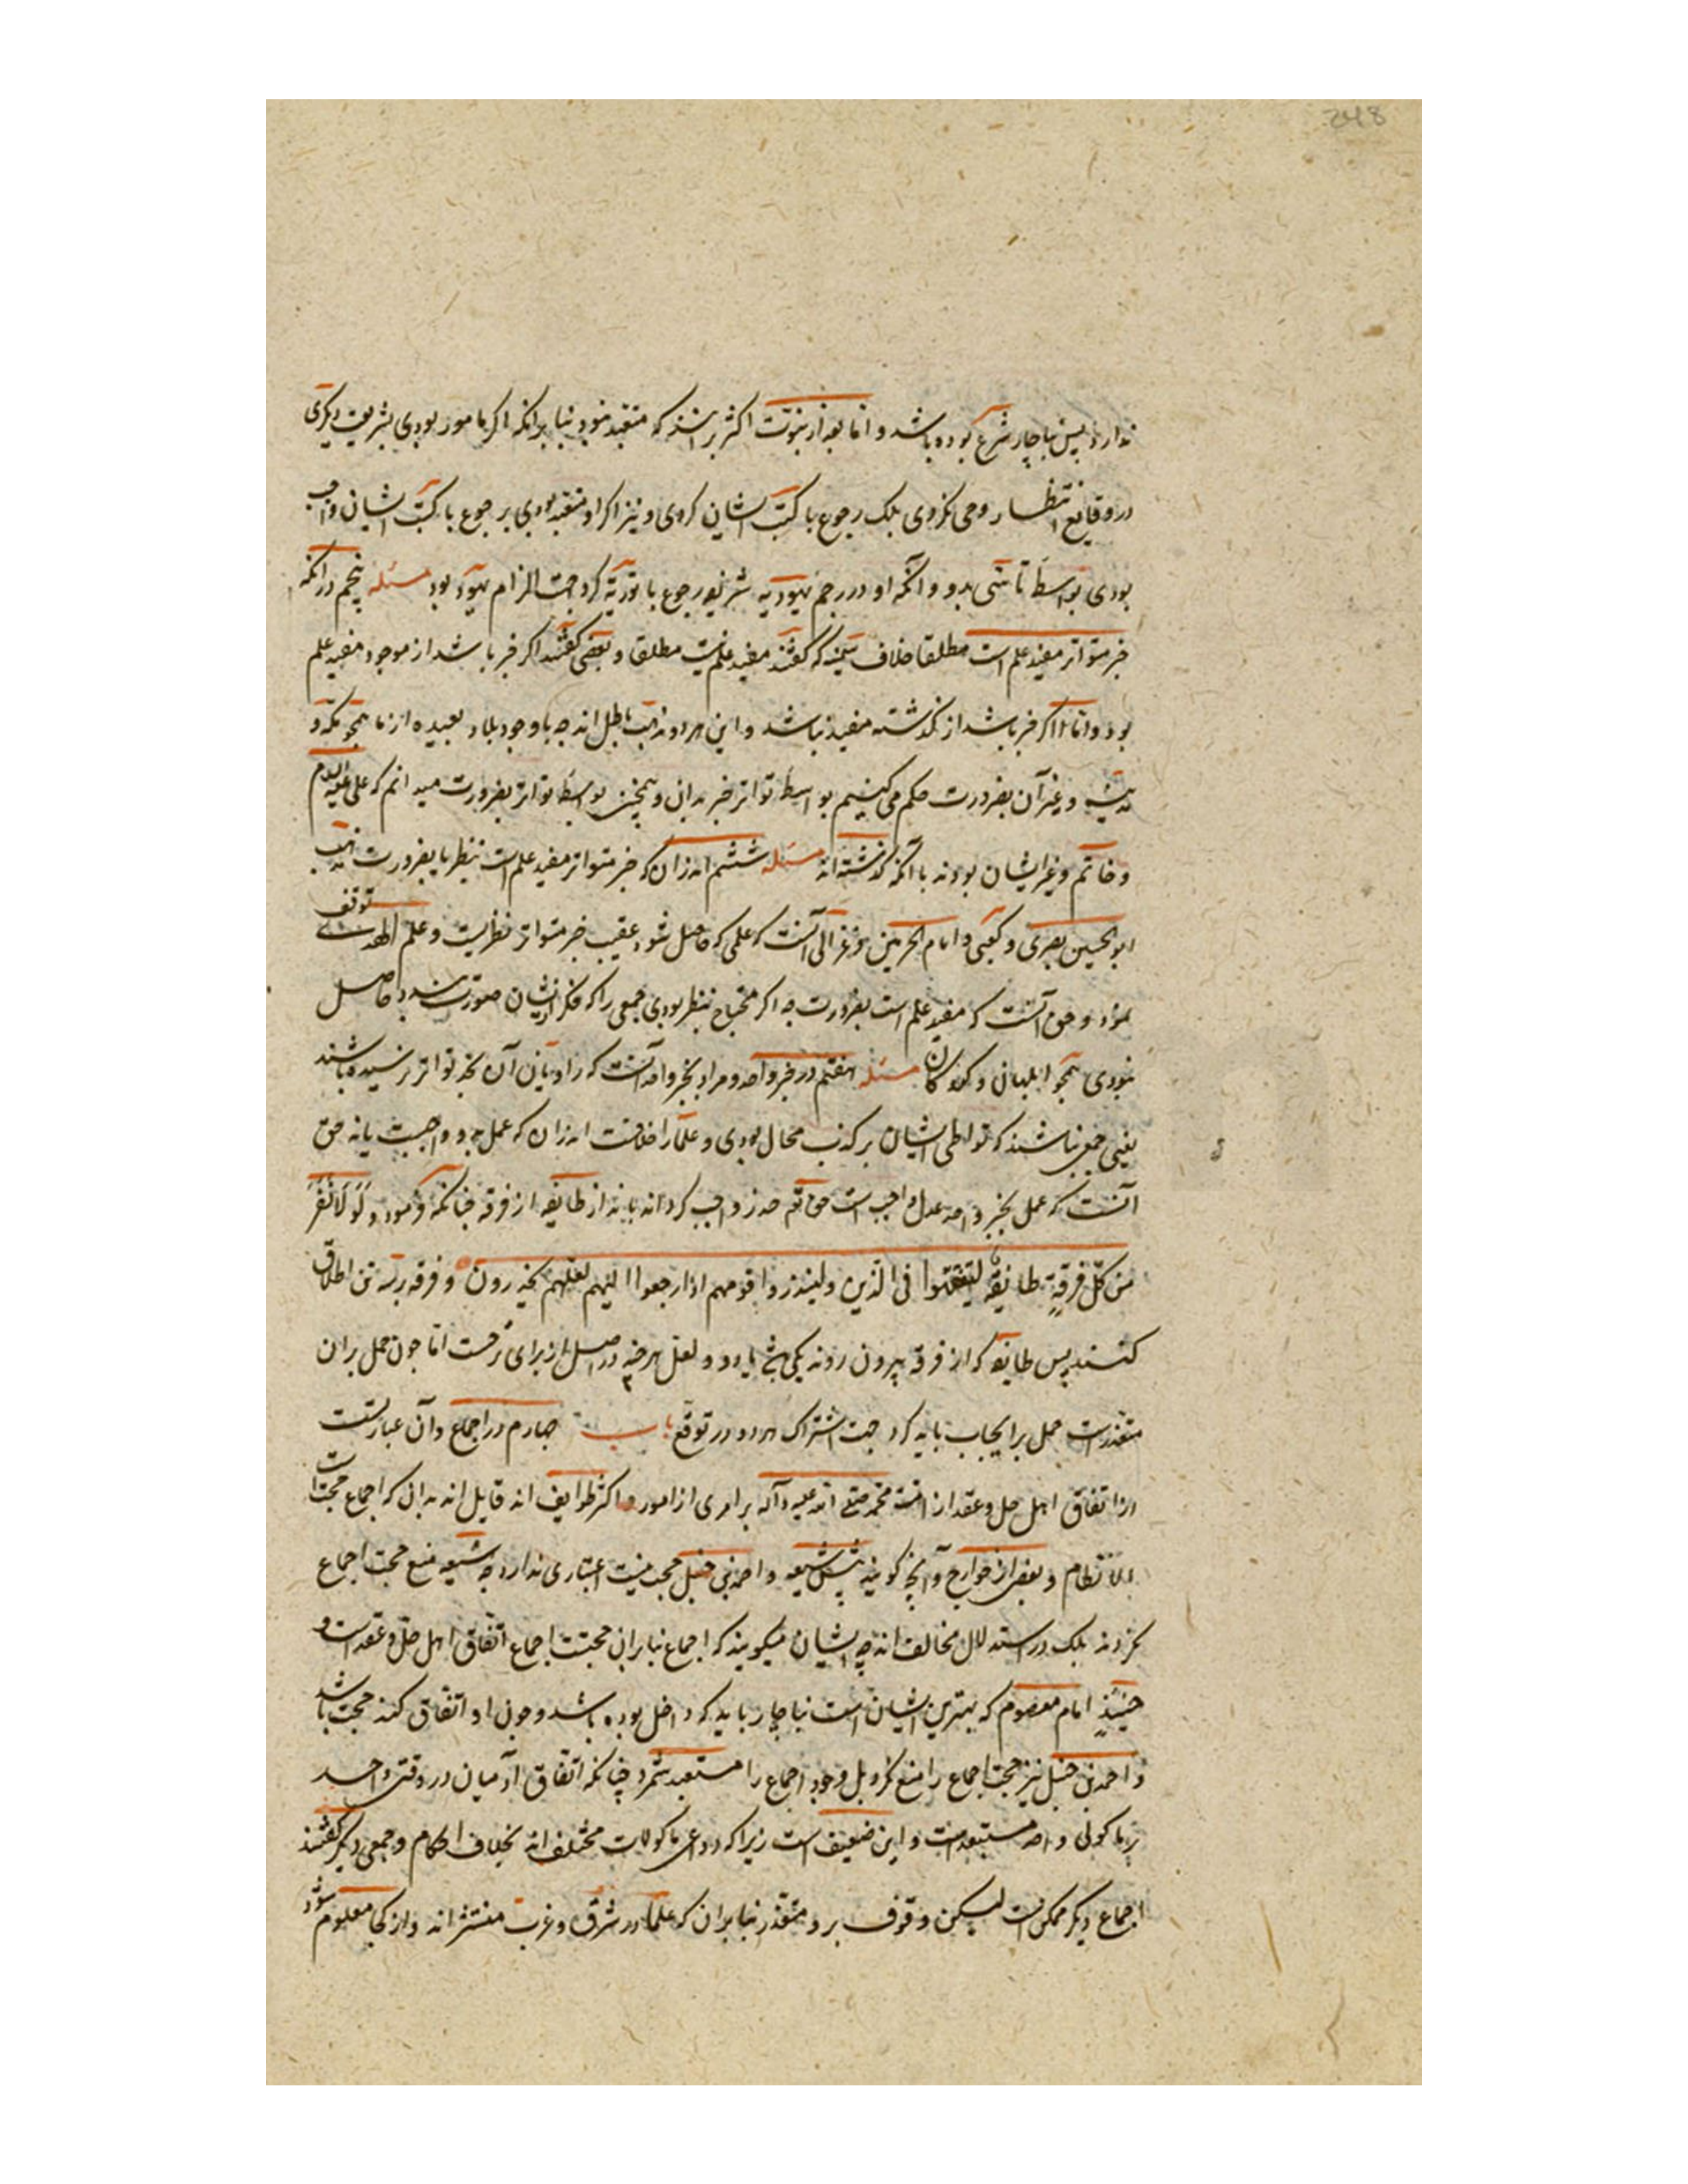 248
ندارد پس ناچار شرع بوده باشد و اما بعد از نبوت اکثر برانند که متعبد نبود بنا برآنکه اگر مامور بودی بشریعت دیگری
در وقایع انتظار وحی نکردی بلک رجوع با کتب ایشان کردی و نیز اگر او متعبد بودی برجوع با کتب ایشان واجب
بودی بواسطه تاسّی بدو و آنکه او در رجم یهودیه شریفه رجوع با توریة کرد جهت الزام یهود بود مسئله پنجم در آنکه
خبر متواتر مفید علم است مطلقا خلاف سمنیه که گفتند مفید علم نیست مطلقا و بعضی گفتند اگر خبر باشد از موجود مفید علم
بود و اما اگر خبر باشد از گذشته مفید نباشد و این هر دو مذهب باطل اند چه با وجود بلاد بعیده از ما همچو مکّه و
مدینه و غیر آن بضرورت حکم می کنیم بواسطه تواتر خبر بدان و همچنین بواسطه تواتر بضرورت میدانیم که علی علیه السلام
و حاتم و غیر ایشان بودند با آنکه گذشته اند مسئله ششم اندر آن که خبر متواتر مفید علم است بنظر یا بضرورت مذهب
ابوالحسین بصری و کعبی و امام الحرمین و غزالی آنست که علمی که حاصل شود عقیب خبر متواتر نظریست و علم الهدی توقف
نمود و حق آنست که مفید علم است بضرورت چه اگر محتاج بنظر بودی جمعی را که فکر از ایشان صورت نبندد حاصل
نبودی همچو ابلهان و کودکان مسئله هفتم در خبر واحد و مراد بخبر واحد آنست که راویان آن بحد تواتر نرسیده باشند
یعنی جمعی نباشند که تواطی ایشان بر کذب محال بودی و علما را خلافست اندر آن که عمل بدو واجبست یا نه حق
آنست که عمل بخبر واحد عدل واجب است حق تعم حذر واجب کرد انذار طایفه از فرقه چنانکه فرمود و لَوْ لَا نَفَرَ
مِن کلّ فرقةٍ طایفة لیتفقّهوا فی الدّین و لینذروا قومهم اذا رجعوا الیهم لعلهم یحذرون و فرقه بر سه تن اطلاق
کنند پس طایفه که از فرقه بیرون روند یکی باشد یا دو و لعل هرچند در اصل از برای ترجیست اما چون حمل بر آن
متعذرست حمل بر ایجاب باید کرد جهت اشتراک هر دو در توقع باب چهارم در اجماع و آن عبارتست
از اتفاق اهل حل و عقد از امّت محمّد صلی الله علیه و آله بر امری از امور و اکثر طوایف اند قایل اند بدان که اجماع حجت است
الا نظام و بعضی از خوارج و آنچه گویند پیش شیعه و احمد بن حنبل حجت نیست اعتباری ندارد چه شیعه منع حجت اجماع
نکردند بلک در استدلال مخالف اند چه ایشان میگویند که اجماع بنا بر آن حجتست اجماع اتفاق اهل حل و عقد است و
حینئذٍ امام معصوم که بهترین ایشان است ناچار باید که داخل بوده باشد و چون او اتفاق کند حجت باشد
و احمد بن حنبل نیز حجت اجماع را منع نکرد بل وجود اجماع را مستبعد شمرد چنانکه اتفاق آدمیان در وقتی واحد
بر ماکولی واحد مستبعدست و این ضعیف است زیرا که دواعی ماکولات مختلف اند بخلاف احکام و جمعی دیگر گفتند
اجماع دیگر ممکن است لیکن وقوف برو متعذر بنا بر آن که علما در شرق و غرب منتشر اند و از کجا معلوم شود